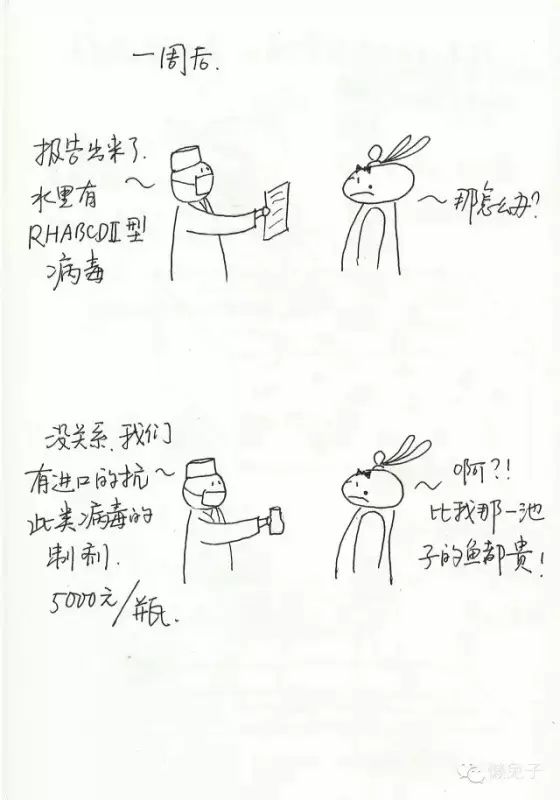 一周后.
报告出来了.
水里有
RHABCDII型
病毒
那怎么办?
没关系.我们
有进口的抗
此类病毒的
制剂.
5000元/瓶.
啊?!
比我那一池
子的鱼都贵!
懒兔子